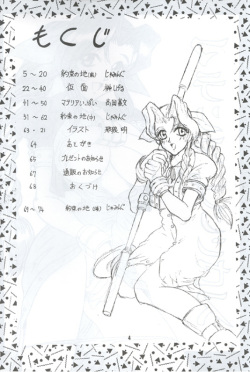 もくじ
5 ~ 20 約束の地(前) じゃみんぐ
22 ~ 40 仮面
41 ~ 50 マテリアいっぱい
51 ~ 62 約束の地(中) じゃみんぐ
63 · 21 イラスト
64 あとがき
65 プレゼントのおしらせ
67 通販のお知らせ
68 おくづけ
69 ~ 94 約束の地(後) じゃみんぐ